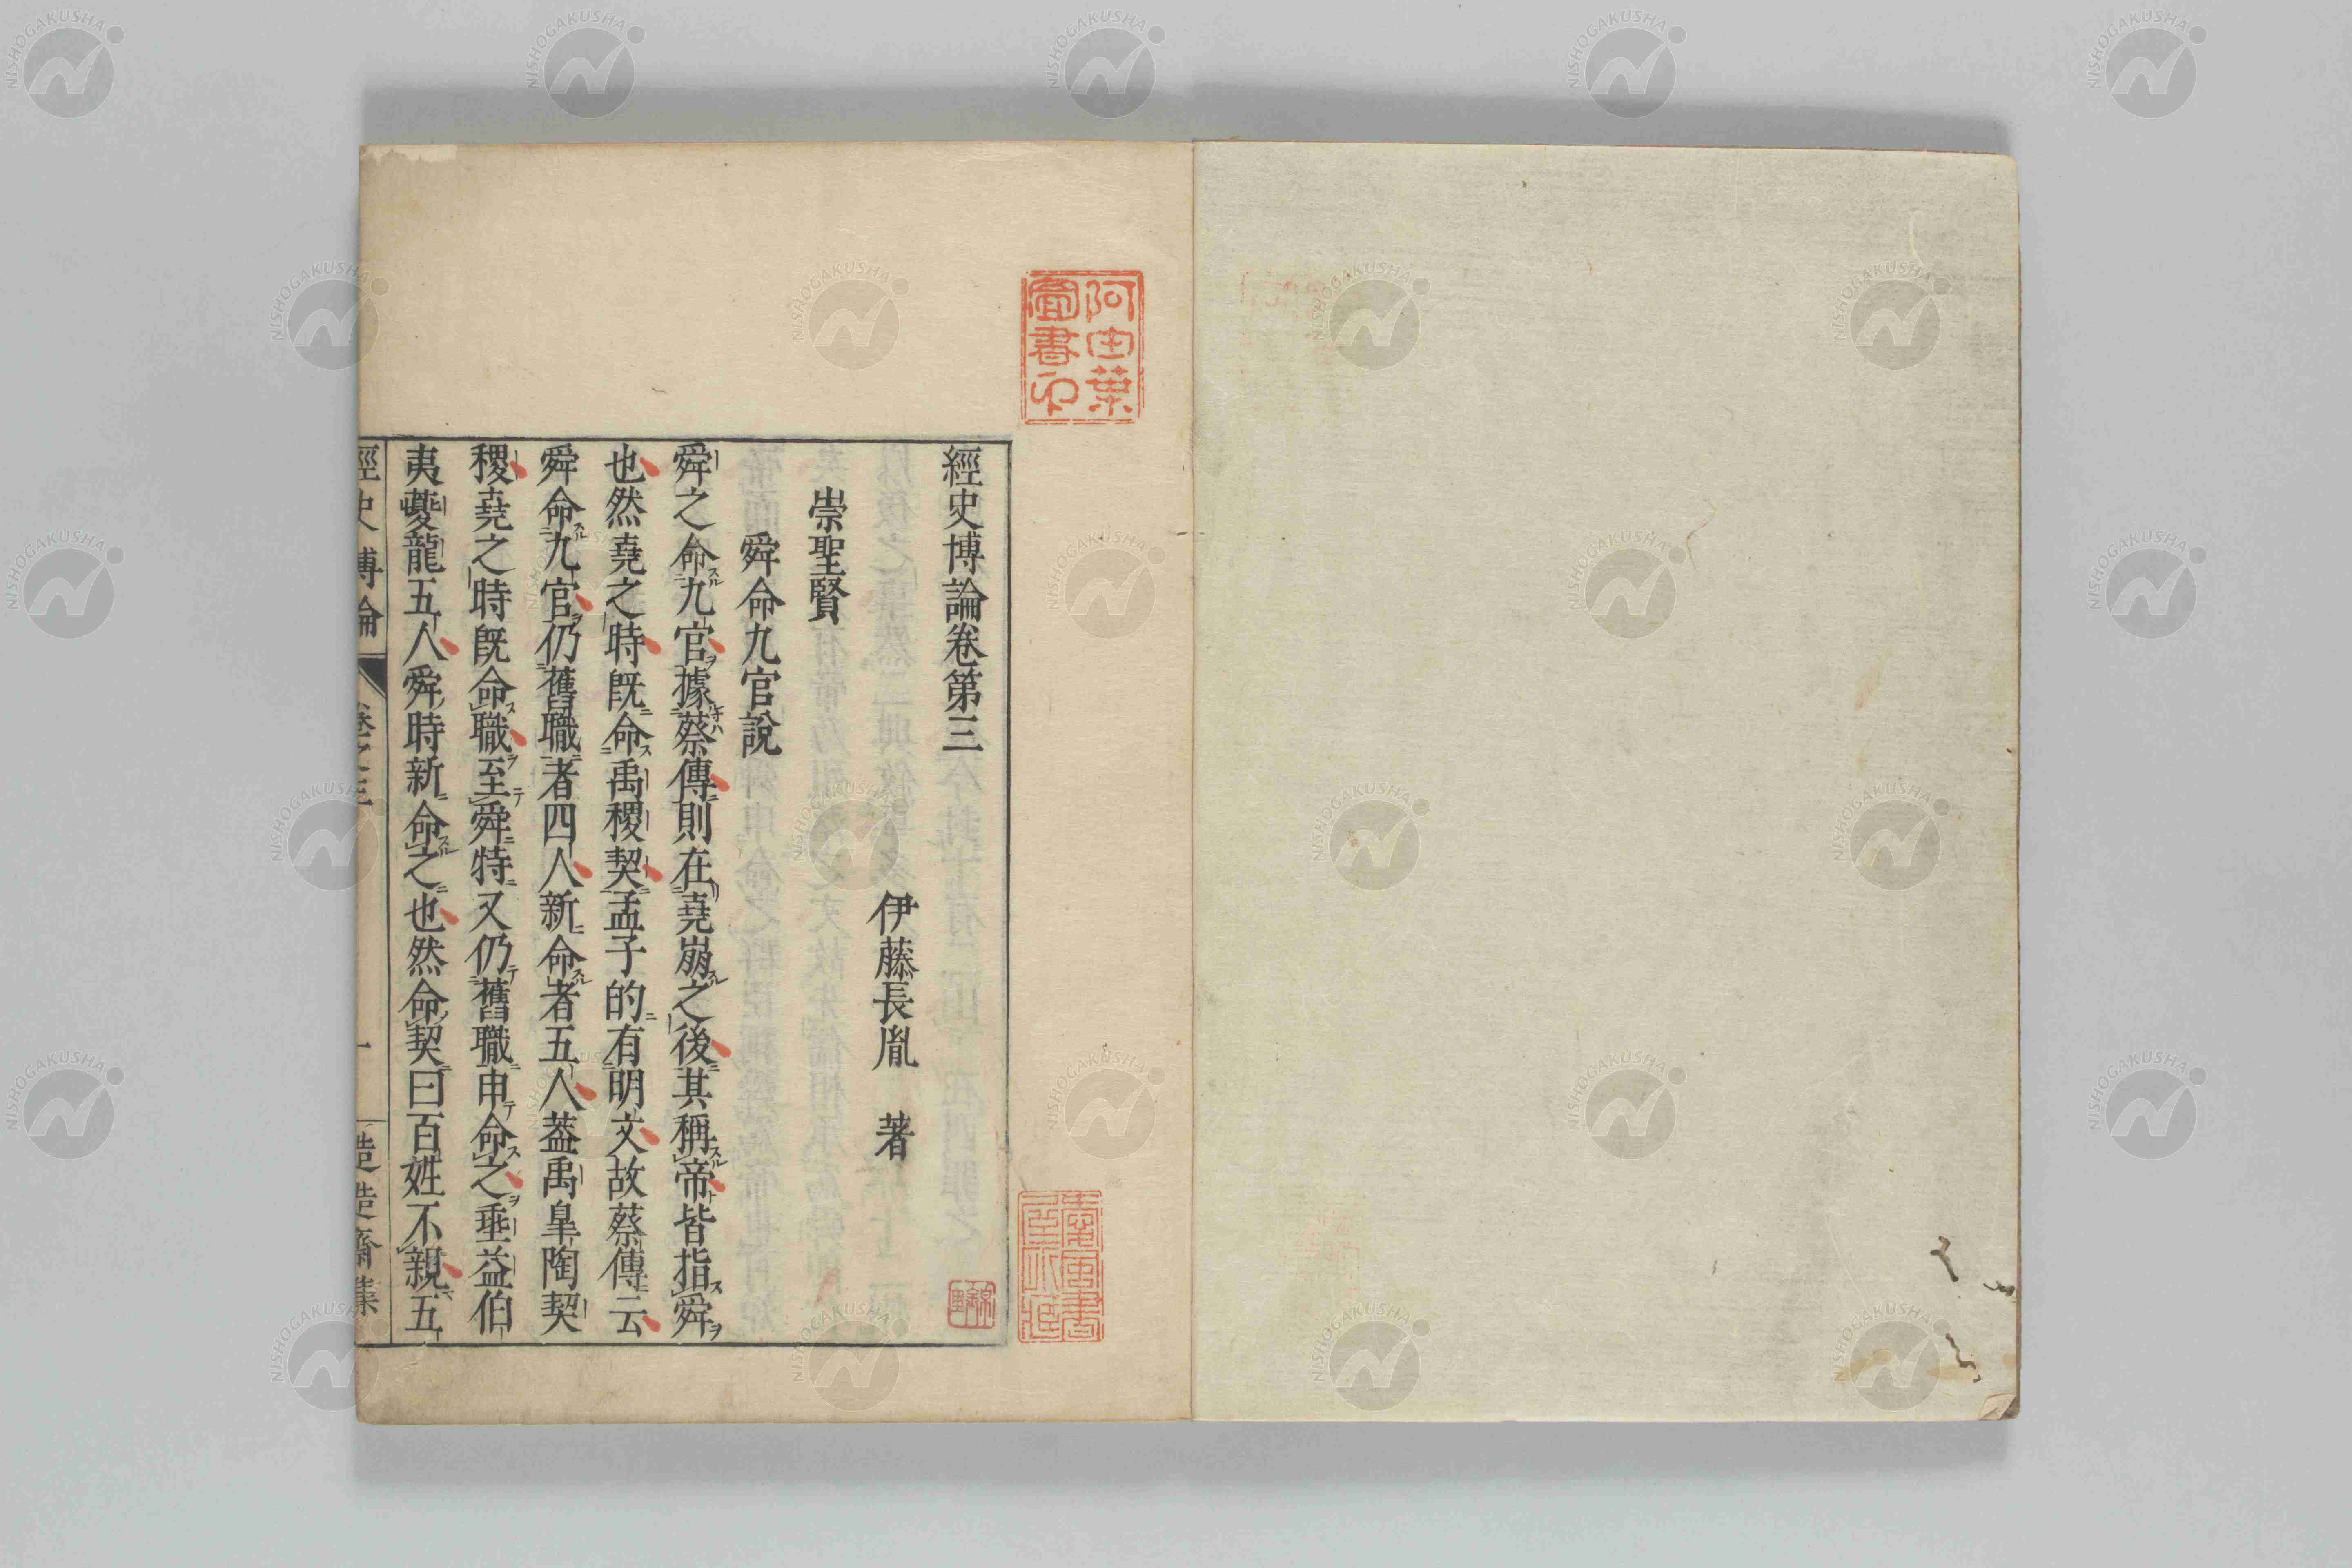 經史博論卷第三
伊藤長胤 著
崇聖賢
舜命九官說
舜之命九官據蔡傳則在堯崩之後其稱帝皆指舜
也然堯之時既命禹稷契孟子的有明文故蔡傳云
舜命九官仍舊職者四人新命者五人蓋禹皐陶契
稷堯之時既命職至舜特又仍舊職申命之垂益伯
夷夔龍五人舜時新命之也然命契曰百姓不親五
經史博論 卷之三 一
阿由葉
圖書印
NISHOGAKUSHA